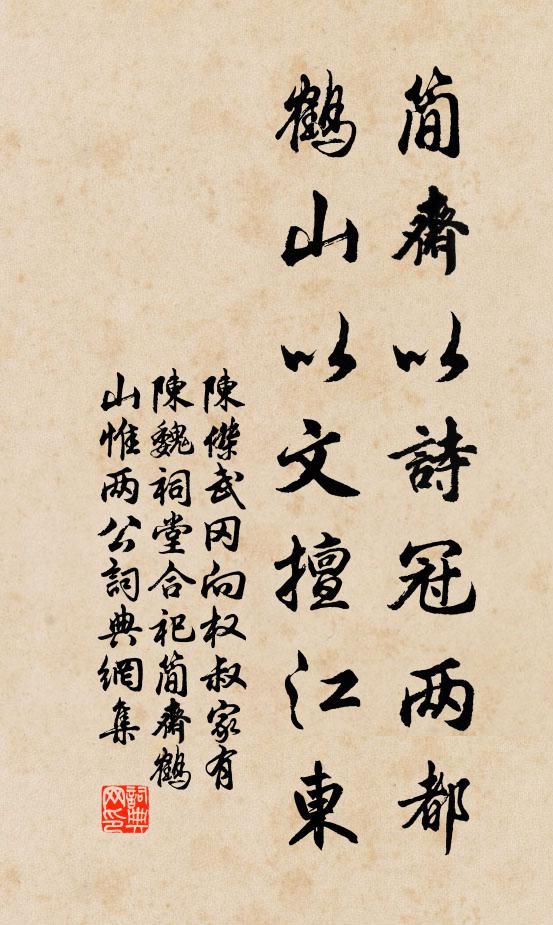 简齋以詩冠两都
鶴山以文擅江東
陳傑武冈向权叔家有
陳魏祠堂合祀简齋鶴
山惟两公詞典網集
詞典网印